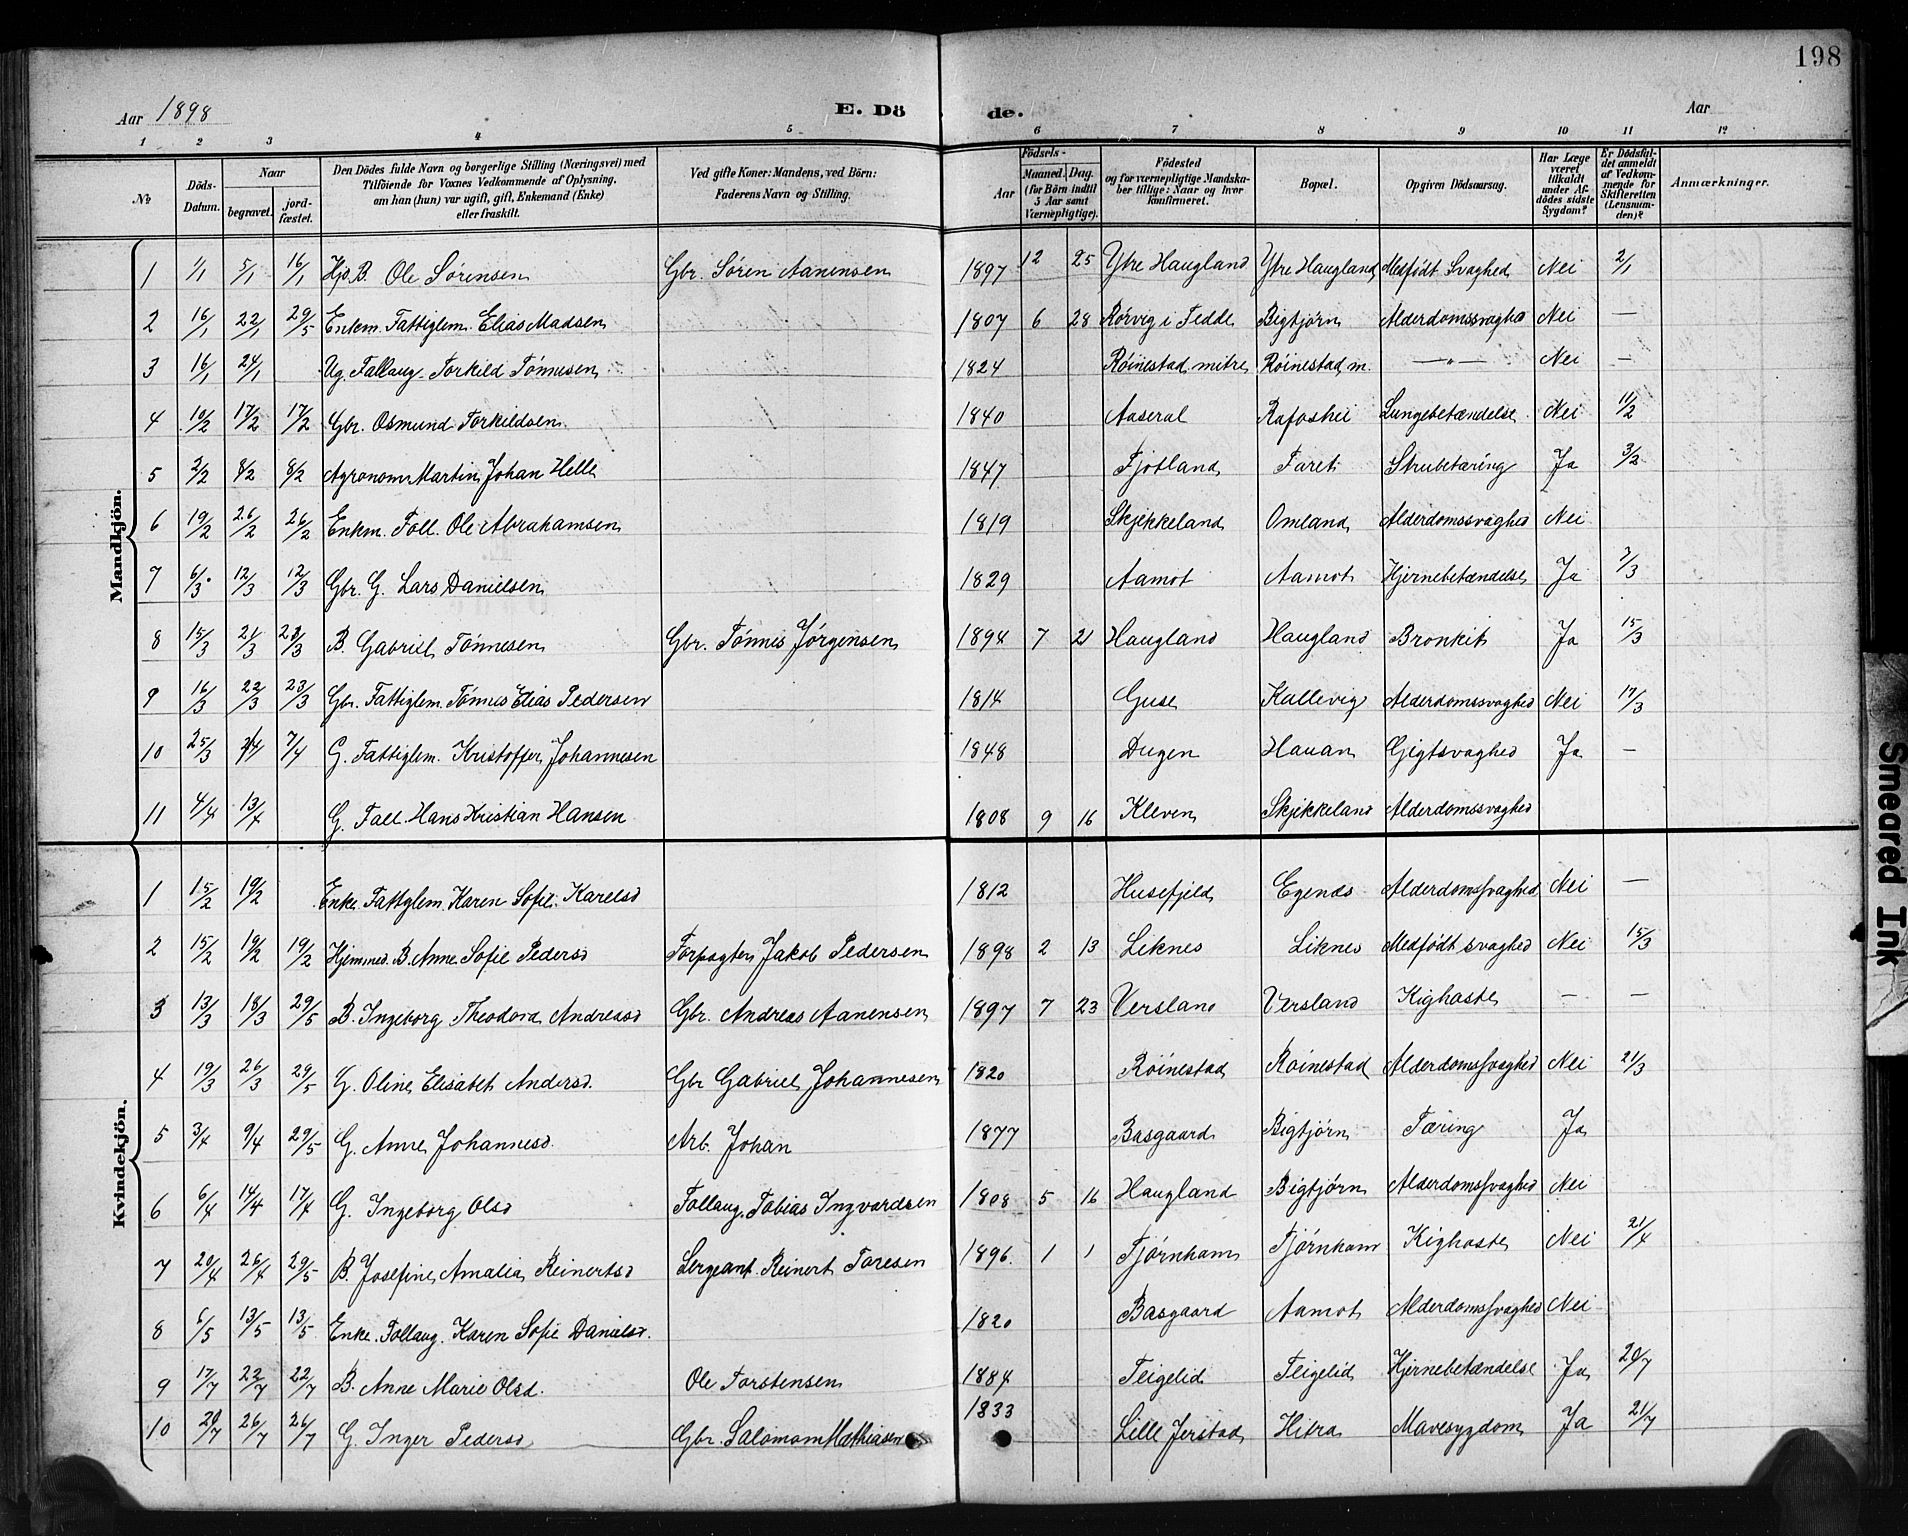 198
Aar 1898 E. Dö de. Aar
1 2 3 4 5 6 7 8 9 10 11 12
No
Döds-Datum.
Naar
begravet.
jord-fæstet.
Den Dödes fulde Navn og borgerlige Stilling (Næringsvei) med
Tilföiende for Voxnes Vedkommende af Oplysning,
om han (hun) var ugift, gift, Enkemand (Enke)
eller fraskilt.
Ved gifte Koner: Mandens, ved Börn:
Faderens Navn og Stilling.
Födsels-
Aar
Maaned. Dag.
(for Börn indtil
5 Aar samt
Værnepligtige).
Födested
og for værnepligtige Mandska-
ber tillige: Naar og hvor
konfirmeret.
Bopæl.
Opgiven Dödsaarsag.
Har Læge
været
tilkaldt
under Af-
dødes sidste
Sygdom?
Er Dödsfal-
det anmeldt
af Vedkom-
mende for
Skifteretten
(Lensman-
den)?
Anmærkninger.
Mandkjön.
1 1/1 5/1 16/1 Hjd. B. Ole Sørensen Gbr. Søren Aanensen 1897 12 25 Ytre Haugland Ytre Haugland Medfødt Svaghed Nei 2/1
2 16/1 22/1 29/5 Enkm. Fattiglem. Elias Madsen 1807 6 28 Rørvig i Fedde Bigtjørn Alderdomssvaghed Nei —
3 16/1 24/1 Ug. Fallaug. Torkild Tønnesen 1824 Røinestad mitre Røinestad m. —"— Nei —
4 10/2 17/2 17/2 Gbr. Osmund Torkildsen 1840 Aaseral Rafoshei Lungebetændelse Nei 11/2
5 2/2 8/2 8/2 Agronom Martin Johan Helle 1847 Fjotland Faret Strubetæring Ja 3/2
6 19/2 26/2 26/2 Enkm. Foll. Ole Abrahamsen 1819 Skjekkeland Omland Alderdomssvaghed Nei
7 6/3 12/3 12/3 Gbr. G. Lars Danielsen 1829 Aamot Aamot Hjernebetændelse Ja 7/3
8 15/3 21/3 23/3 B. Gabriel Tønnesen Gbr. Tønnes Jørgensen 1894 7 21 Haugland Haugland Bronkit Ja 15/3
9 16/3 22/3 23/3 Gbr. Fattiglem. Tønnes Elias Pedersen 1814 Guse Kallevig Alderdomssvaghed Nei 17/3
10 25/3 7/4 7/4 G. Fattiglem. Kristoffer Johannesen 1848 Dugen Hauan Gigtsvaghed Ja —
11 4/4 13/4 G. Fall. Hans Kristian Hansen 1808 9 16 Kleven Skjekkeland Alderdomssvaghed
Kvindekjön.
1 15/2 19/2 Enke Fattglem. Karen Sofie Karelsd 1812 Husefjeld Egenæs Alderdomssvaghed Nei —
2 15/2 19/2 19/2 Hjemmed. B. Anne Sofie Pedersd Forpagter Jakob Pedersen 1898 2 13 Liknes Liknes Medfødt svaghed Nei 15/3
3 13/3 18/3 29/5 B. Ingeborg Theodora Andreasd Gbr. Andreas Aanensen 1897 7 23 Versland Versland Kighoste — —
4 19/3 26/3 29/5 G. Oline Elisabet Andersd. Gbr Gabriel Johannesen 1820 Røinestad Røinestad Alderdomssvaghed Nei 21/3
5 3/4 9/4 29/5 G. Anne Johannesd. Arb. Johan 1877 Basgaard Bigtjørn Tæring Ja
6 6/4 14/4 17/4 G. Ingeborg Olsd Follaug. Tobias Ingvardsen 1808 5 16 Haugland Bigtjørn Alderdomssvaghed Nei
7 20/4 26/4 29/5 B. Josefine Amalia Reinertsd Sergeant Reinert Taresen 1896. 1 1 Tjørnhom Tjørnhom Kighoste Nei 21/4
8 6/5 13/5 13/5 Enke. Follaug. Karen Sofie Danielsd. 1820 Basgaard Aamot Alderdomssvaghed Nei
9 17/7 22/7 22/7 B. Anne Marie Olsd. Ole Torstensen 1884 Fligelid Fligelid Hjernebetændelse Ja 20/7
10 20/7 26/7 26/7 G. Inger Pedersd Gbr. Salomom Mathiasen 1833 Lille Jerstad Hitra Mavesygdom Ja 21/7
Smeared Ink